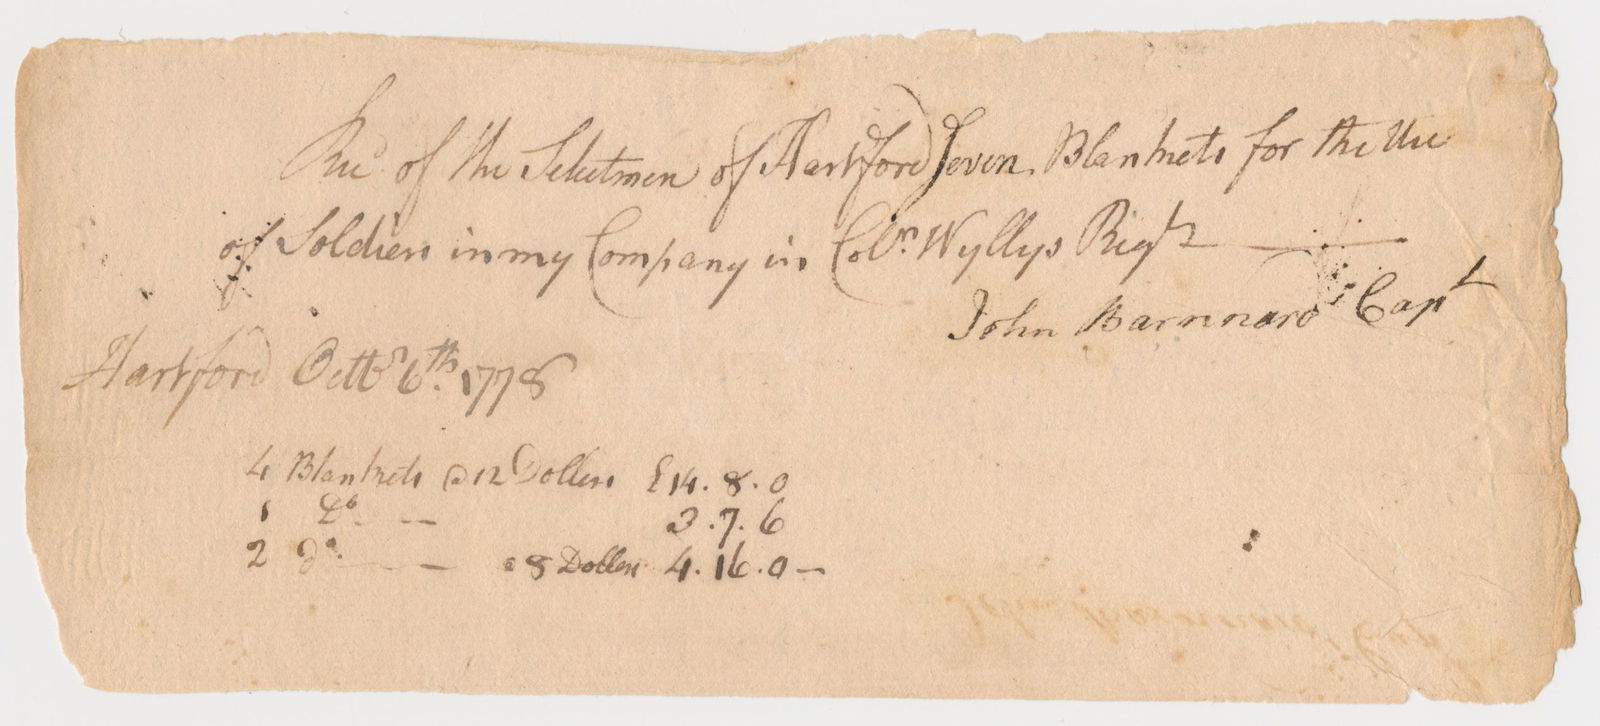 Recd of the Selectmen of Hartford Seven Blankets for the Use
of Soldiers in my Company in Colon. Wyllys Regt
John Barnnard Capt
Hartford Octbr 6th. 1778
4 Blankets @ 12 Dollers £14. 8. 0
1 Do. — — 3. 7. 6
2 do. — — a 8 Dollers 4. 16. 0 —